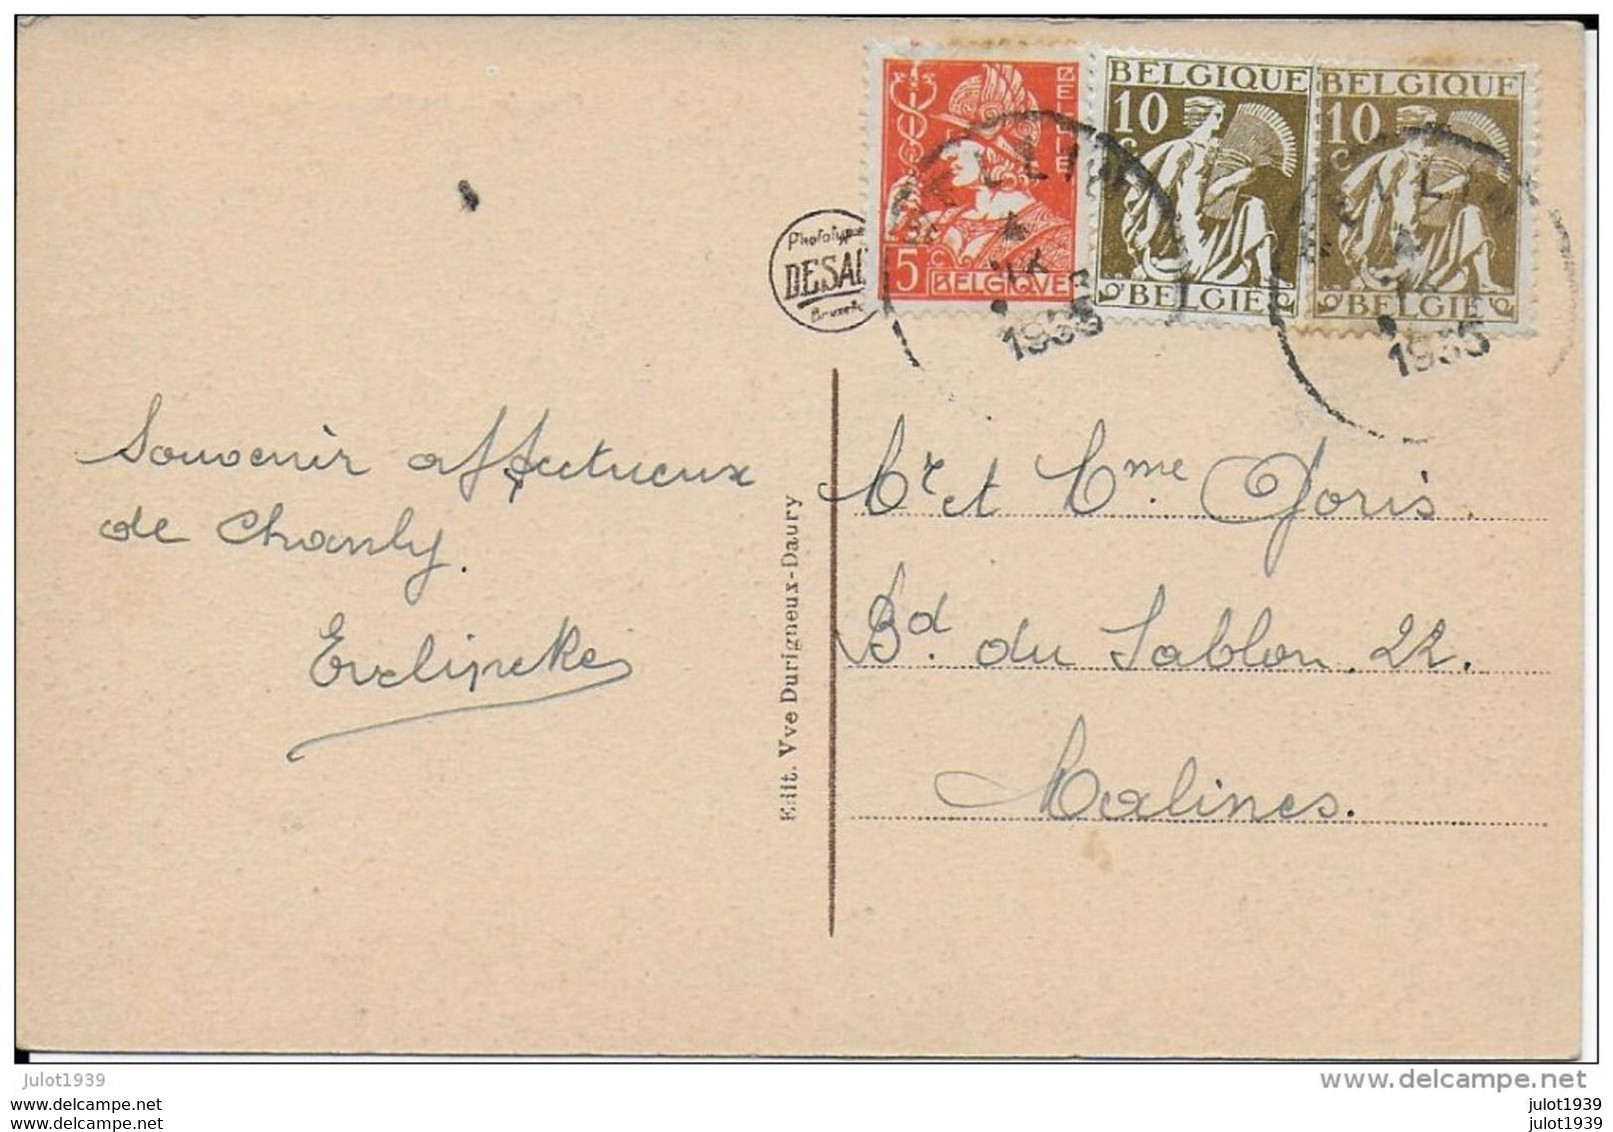 BELGIE
5 c
BELGIQUE
BELGIQUE
10 c
BELGIE
BELGIQUE
10 c
BELGIE
WELLIN
1935
WELLIN
1935
Phototypie
DESAI
Bruxelles
Souvenir affectueux
de Chanly.
Evelineke
Edit. Vve Durigneux-Daury
Mr et Mme Joris.
Bd. du Sablon. 22.
Malines.
julot1939
www.delcampe.net
julot1939
julot1939
julot1939
julot1939